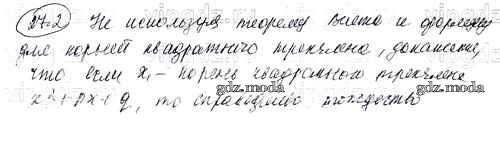 17.2 Не используя теорему Виета и формулу
для корней квадратного трехчлена, докажите,
что если x₁ - корень квадратного трехчлена
x²+px+q, то справедливо тождество
gdz.moda